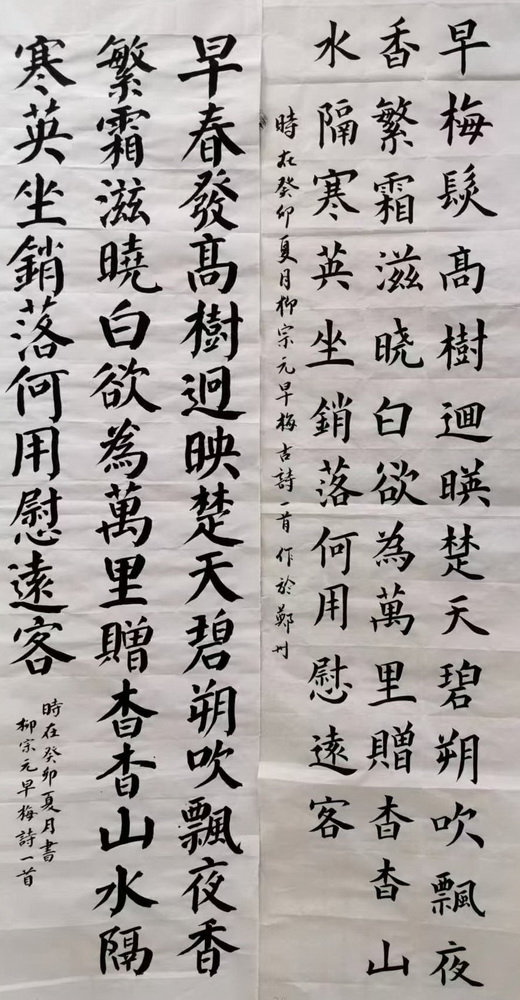 早梅髮高樹逥暎楚天碧朔吹飄夜
香繁霜滋晓白欲為萬里贈杳杳山
水隔寒英坐銷落何用慰遠客
時在癸卯夏月柳宗元早梅古詩一首作於鄭州
早春發高樹逈映楚天碧朔吹飄夜香
繁霜滋曉白欲為萬里贈杳杳山水隔
寒英坐銷落何用慰遠客
時在癸卯夏月書
柳宗元早梅詩一首